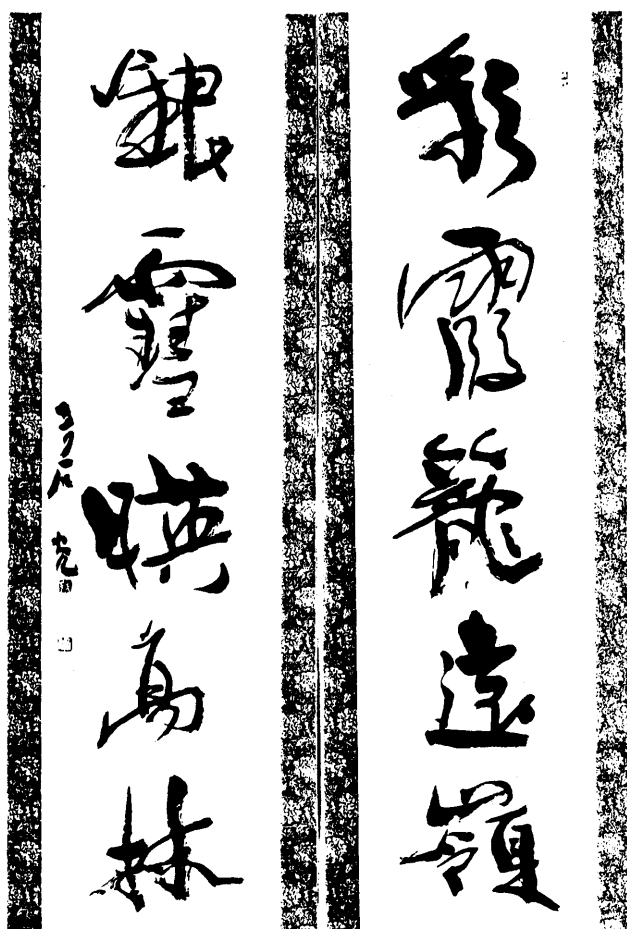 彩霞籠遠嶺
銀雪暎高林